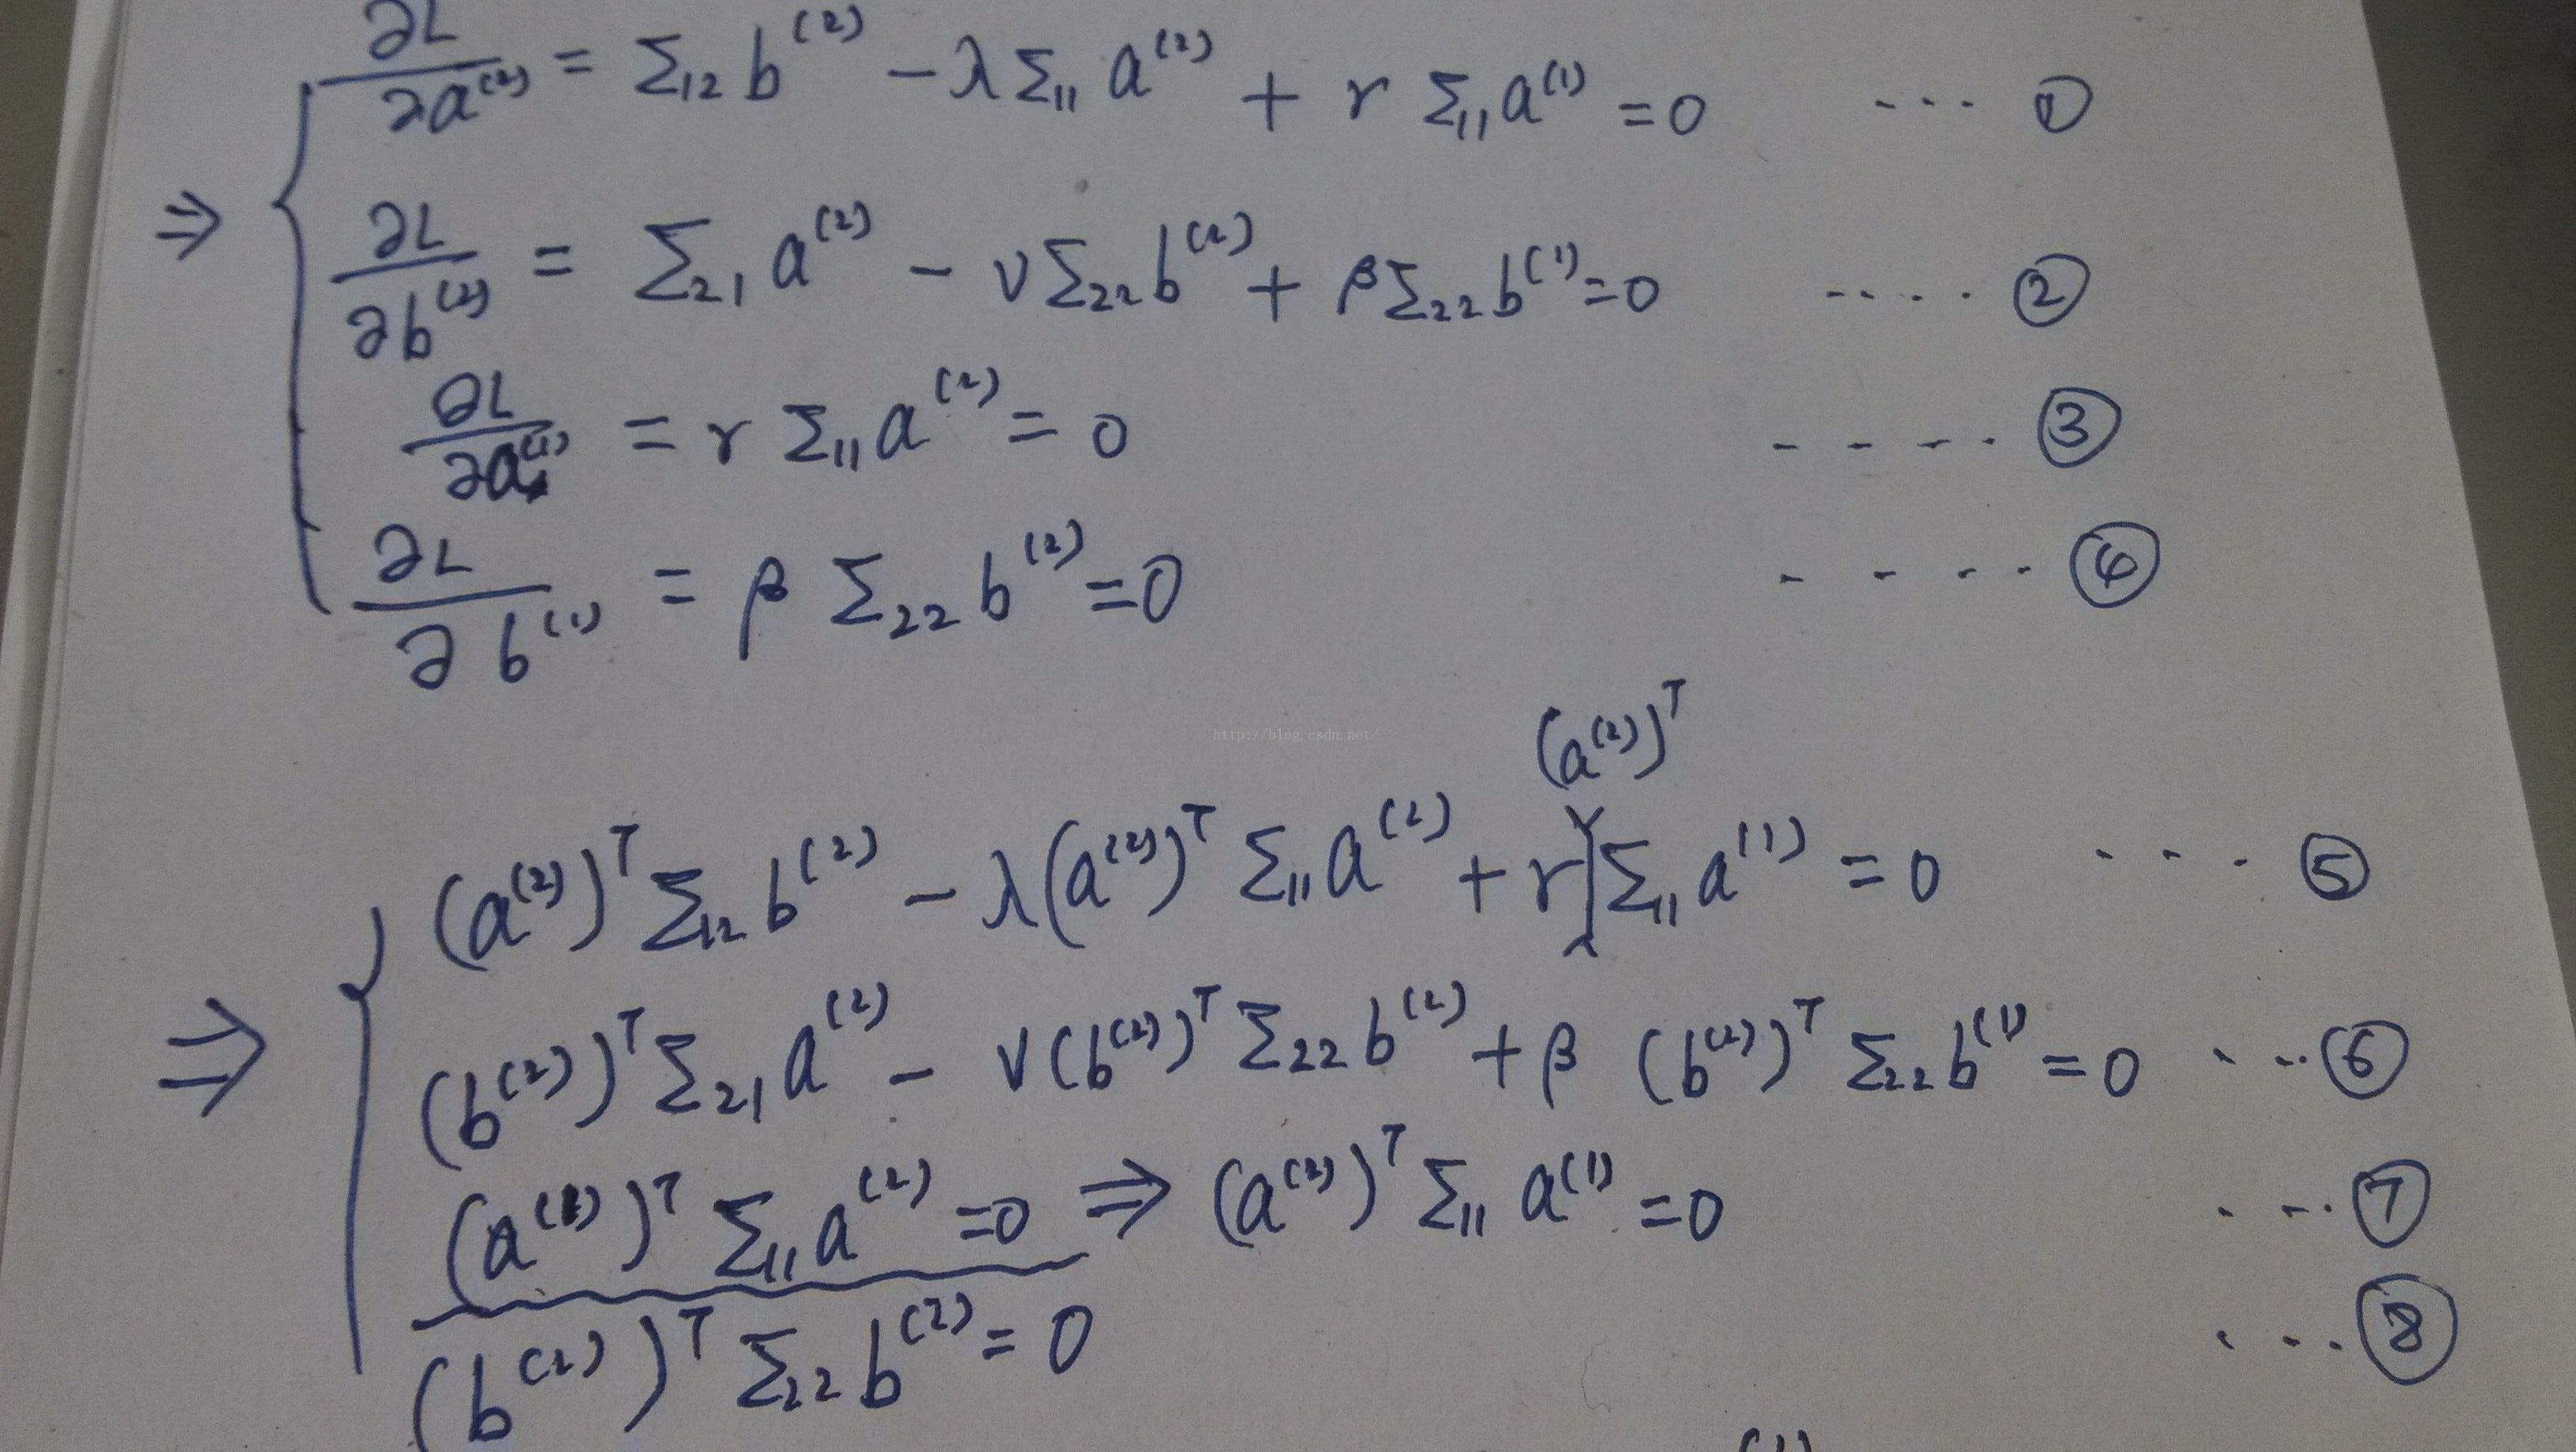 ⇒ { ∂L/∂a⁽²⁾ = Σ₁₂ b⁽²⁾ − λ Σ₁₁ a⁽²⁾ + r Σ₁₁ a⁽¹⁾ = 0 ··· ①
∂L/∂b⁽²⁾ = Σ₂₁ a⁽²⁾ − ν Σ₂₂ b⁽²⁾ + β Σ₂₂ b⁽¹⁾ = 0 ···· ②
∂L/∂a⁽¹⁾ = r Σ₁₁ a⁽²⁾ = 0 ---- ③
∂L/∂b⁽¹⁾ = β Σ₂₂ b⁽²⁾ = 0 ---- ④
http://blog.csdn.net/
⇒ { (a⁽²⁾)ᵀ Σ₁₂ b⁽²⁾ − λ (a⁽²⁾)ᵀ Σ₁₁ a⁽²⁾ + r (a⁽²⁾)ᵀ Σ₁₁ a⁽¹⁾ = 0 ··· ⑤
(b⁽²⁾)ᵀ Σ₂₁ a⁽²⁾ − ν (b⁽²⁾)ᵀ Σ₂₂ b⁽²⁾ + β (b⁽²⁾)ᵀ Σ₂₂ b⁽¹⁾ = 0 ··· ⑥
(a⁽¹⁾)ᵀ Σ₁₁ a⁽²⁾ = 0 ⇒ (a⁽²⁾)ᵀ Σ₁₁ a⁽¹⁾ = 0 ··· ⑦
(b⁽²⁾)ᵀ Σ₂₂ b⁽²⁾ = 0 ··· ⑧